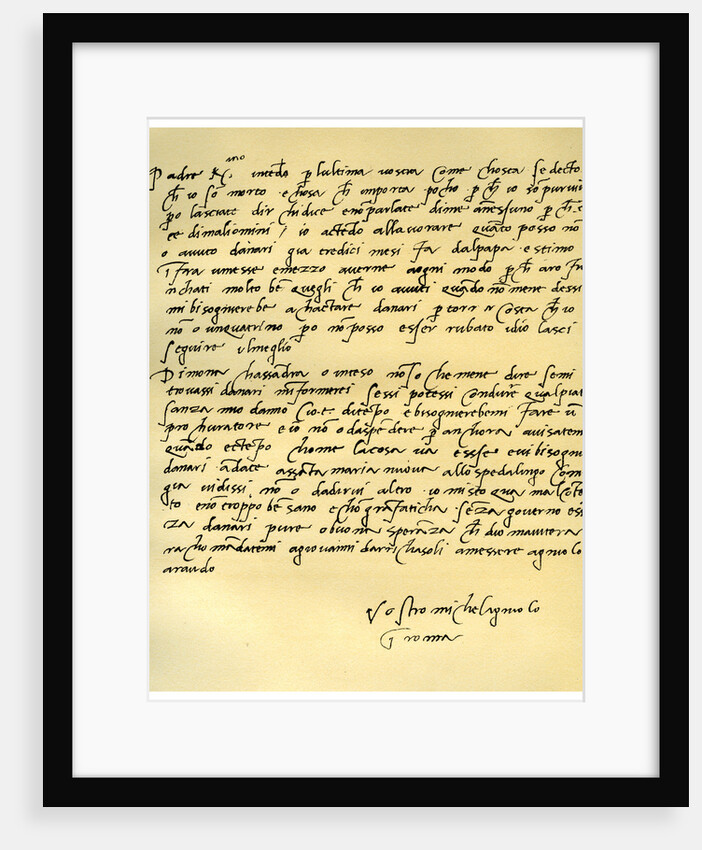 Padre R.mo intēdo p lultima vostra come chostà se decto
ch io sō morto è chosa ch importa pocho p ch io sō pur vi
po lasciate dir chi dice e nō parlate di me a nessuno p ch
ce di mali omini / io actēdo a llavorare quāto posso nō
o avuto danari già tredici mesi fa dal papa e stimo
ī fra u mese e mezzo averne a ogni modo p ch arò
nchati molto bē quegli ch io avuti quādo nō me ne dessi
mi bisognierebe achactare danari p torn r costà ch io
nō o un quatrino po nō posso esser rubato idio lasci
seguire ulmeglio
Di mona chassādra o inteso nō so che me ne dire se mi
trovassi danari m informerei se ssi potessi condur qua l piat
sanza mio danno cioè di tēpo e bisognierebemi fare ū
prochuratore e io nō o da spēdere p anchora avisatem
quādo è tēpo chome la cosa va e sse e vi bisogni
danari ādate a ssāta maria nuova allo spedalingo com
già vi dissi nō o da dirvi altro io mi sto qua mal cōtē
to e nō troppo bē sano e chō grā faticha sēza governo e sē
za danari pure o buona sperāza ch dio m aiuterà
rachomādatemi a giovanni da rrichasoli a messere agniolo
araldo
Vostro michelagniolo
ī roma